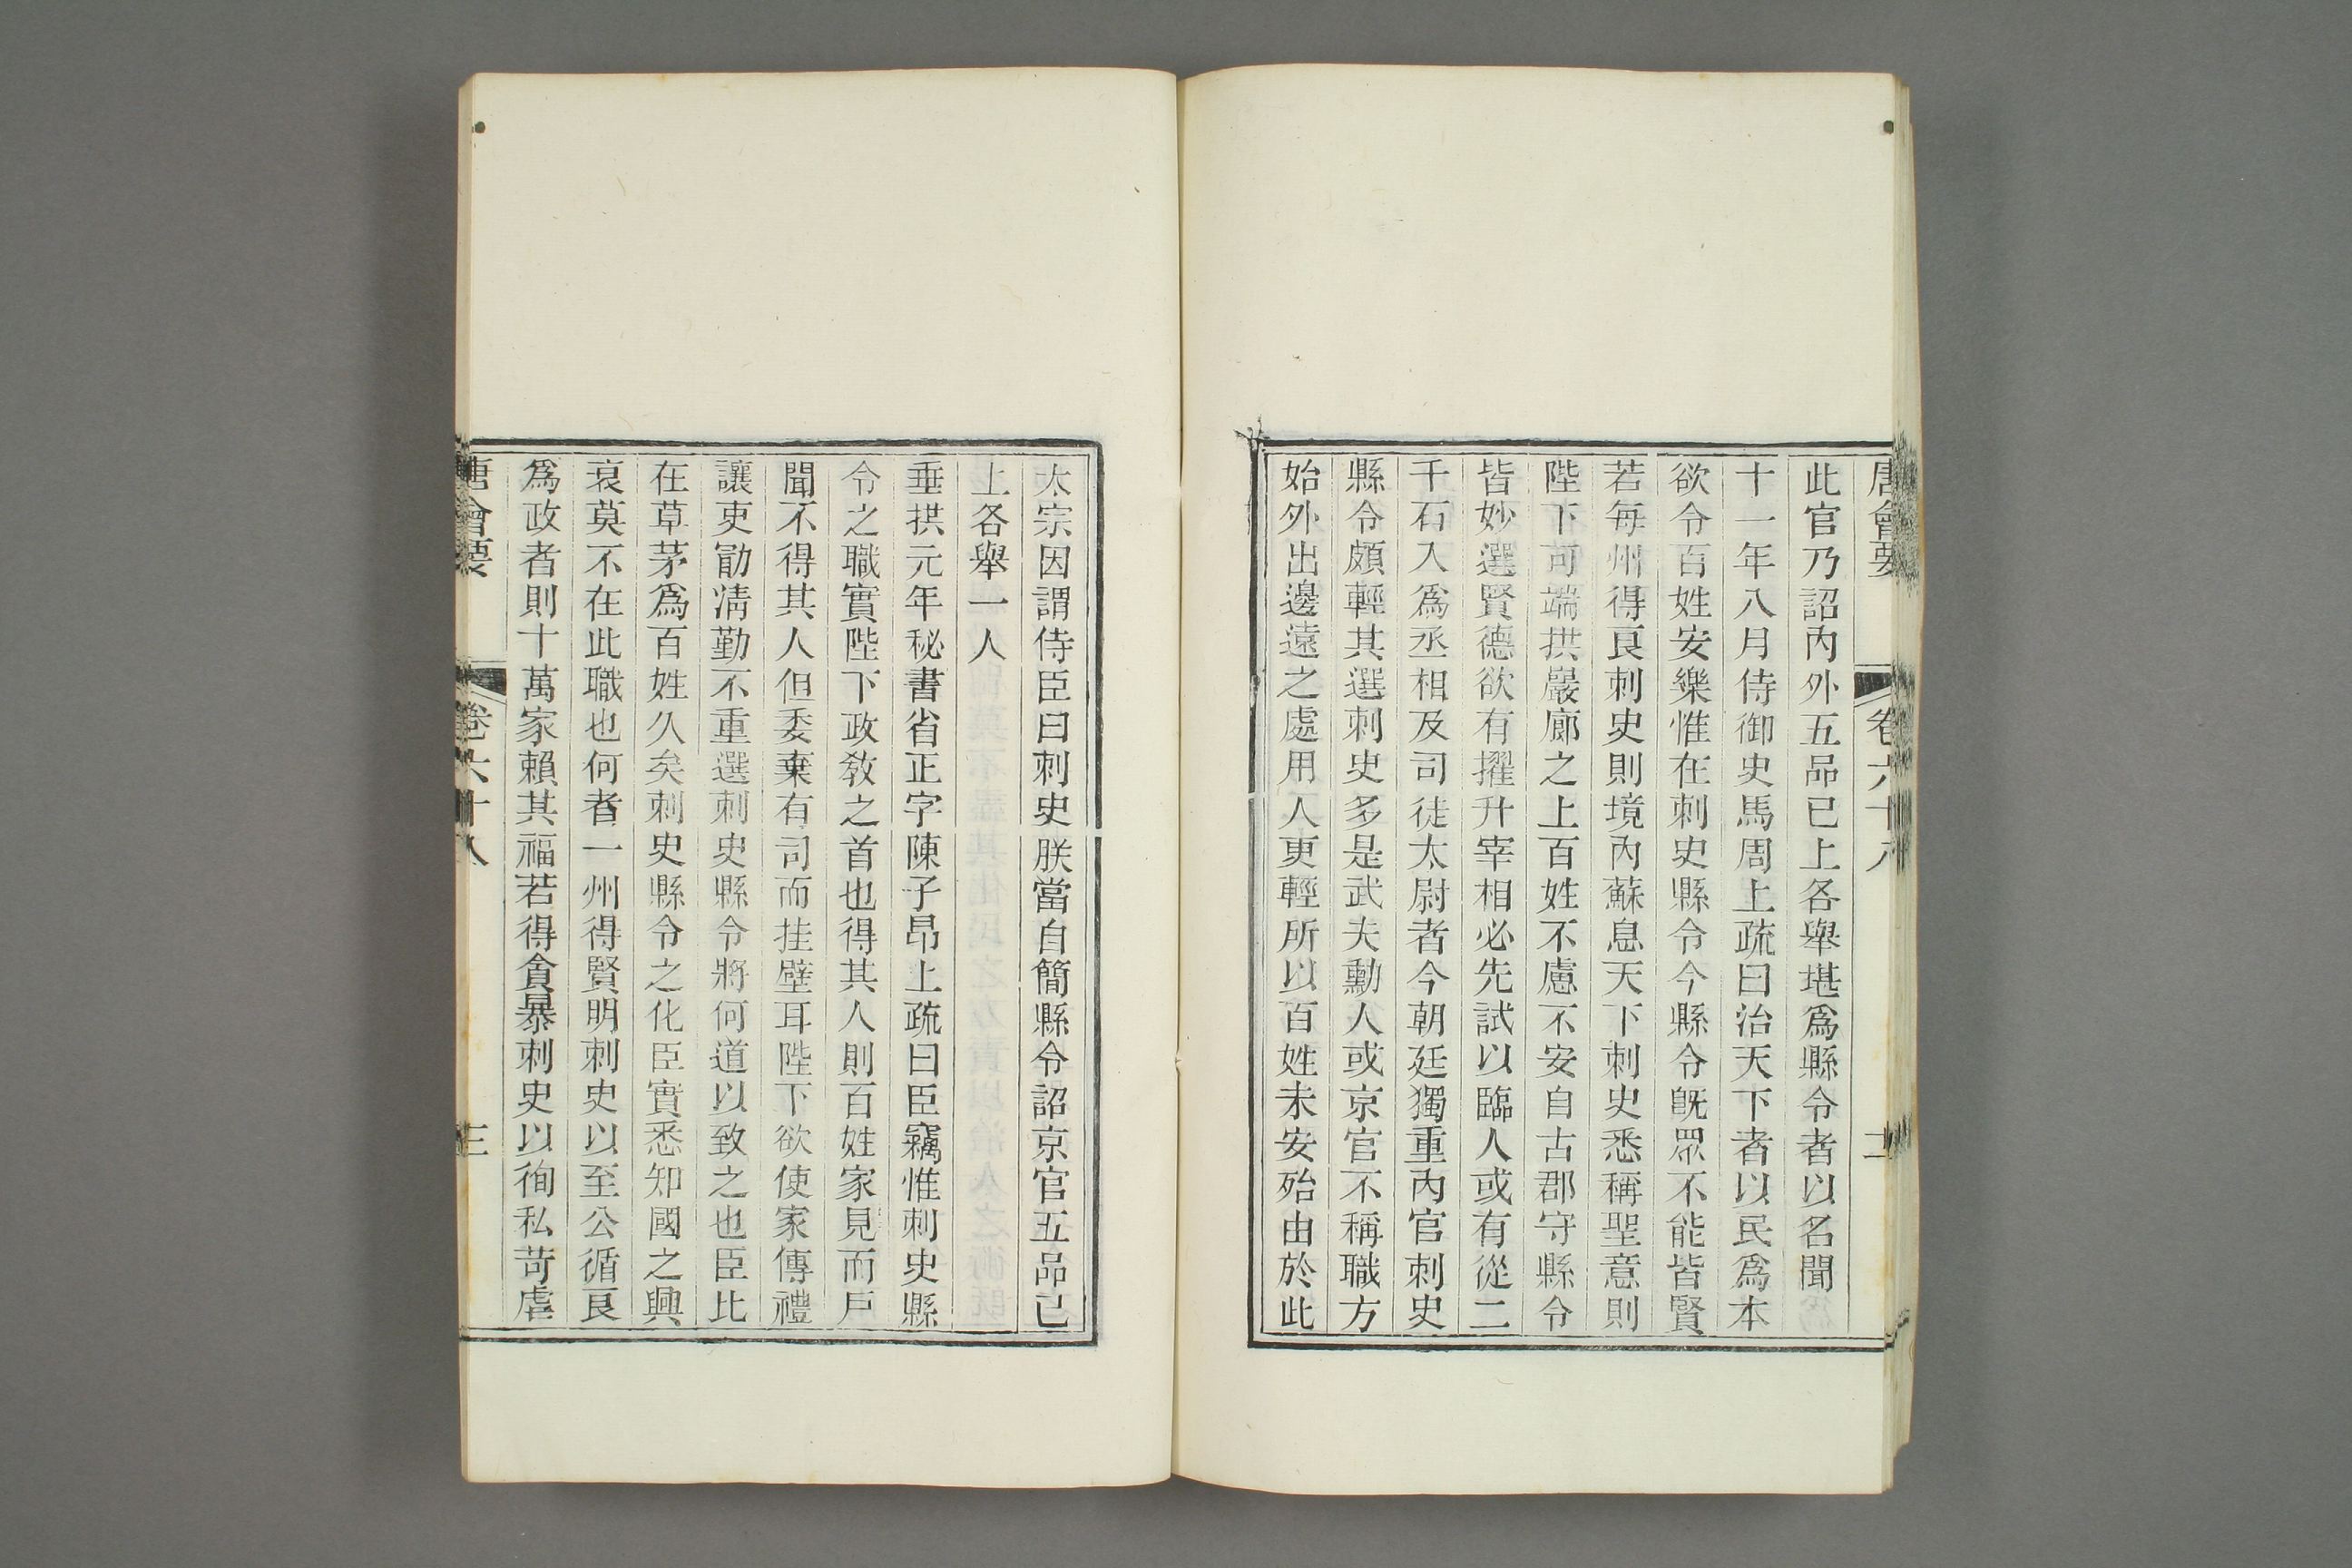 唐會要 卷六十八 二
此官乃詔內外五品已上各舉堪爲縣令者以名聞
十一年八月侍御史馬周上疏曰治天下者以民爲本
欲令百姓安樂惟在刺史縣令今縣令旣眾不能皆賢
若每州得良刺史則境內蘇息天下刺史悉稱聖意則
陛下可端拱巖廊之上百姓不慮不安自古郡守縣令
皆妙選賢德欲有擢升宰相必先試以臨人或有從二
千石入爲丞相及司徒太尉者今朝廷獨重內官刺史
縣令頗輕其選刺史多是武夫勳人或京官不稱職方
始外出邊遠之處用人更輕所以百姓未安殆由於此
太宗因謂侍臣曰刺史朕當自簡縣令詔京官五品已
上各舉一人
垂拱元年秘書省正字陳子昂上疏曰臣竊惟刺史縣
令之職實陛下政敎之首也得其人則百姓家見而戶
聞不得其人但委棄有司而挂壁耳陛下欲使家傳禮
讓吏勖清勤不重選刺史縣令將何道以致之也臣比
在草茅爲百姓久矣刺史縣令之化臣實悉知國之興
衰莫不在此職也何者一州得賢明刺史以至公循良
爲政者則十萬家賴其福若得貪暴刺史以徇私苛虐
唐會要 卷六十八 三